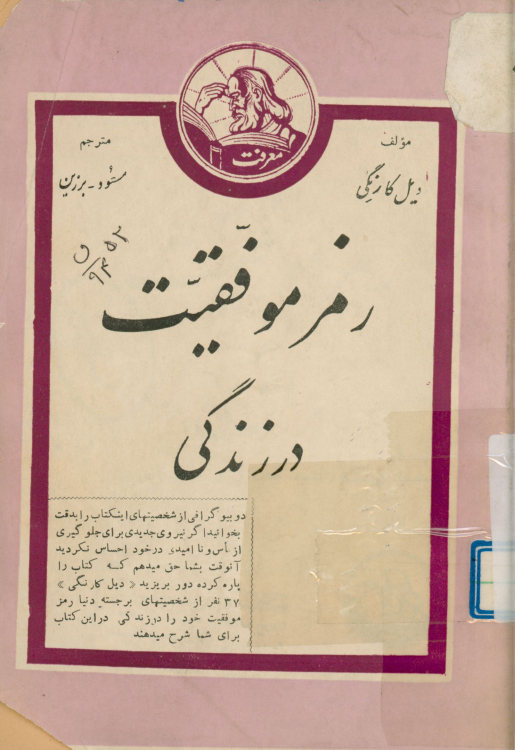 معرفت
مؤلف
دیل کارنگی
مترجم
مسعود - برزین
رمز موفقیّت
در زندگی
دو بیو گرافی از شخصیتهای اینکتاب را بدقت
بخوانید اگر نیروی جدیدی برای جلو گیری
از یأس و نا امیدی در خود احساس نکردید
آنوقت بشما حق میدهم کـه کتاب را
پاره کرده دور بریزید « دیل کارنگی »
۳۷ نفر از شخصیتهای برجسته دنیا رمز
موفقیت خود را درزندگی دراین کتاب
برای شما شرح میدهند